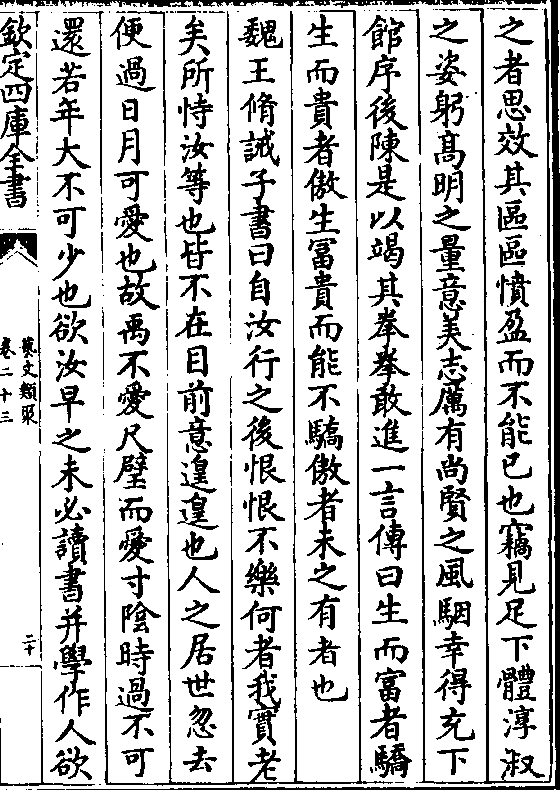 之者思效其區區憤盈而不能已也竊見足下體淳淑
之姿躬髙明之量意美志厲有尚賢之風駰幸得充下
館序後陳是以竭其拳拳敢進一言傳曰生而富者驕
生而貴者傲生冨貴而能不驕傲者未之有者也
魏王脩誡子書曰自汝行之後恨恨不樂何者我實老
矣所恃汝等也皆不在目前意遑遑也人之居世忽去
便過日月可愛也故禹不愛尺璧而愛寸陰時過不可
還若年大不可少也欲汝早之未必讀書并學作人欲
欽定四庫全書
藝文類聚
卷二十三
二十